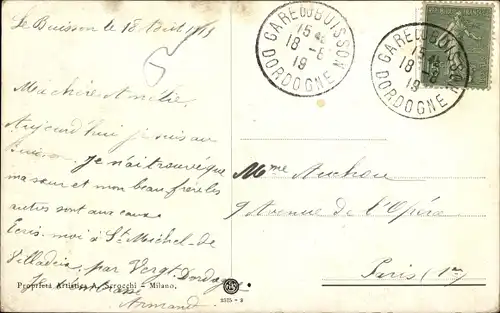 Le Buisson le 18 Août 1919
Ma chère Amélie,
Aujourd'hui je suis au
Buisson. Je n'ai trouvé que
ma sœur et mon beau frère les
autres sont aux eaux
Ecris-moi à St Michel-de
Villadeix, par Vergt. Dordogne.
Je t'embrasse
Armand
Proprietà Artistica A. Scrocchi - Milano,
2515 - 2
GARE DU BUISSON
15
18 - 8
19
DORDOGNE
GARE DU BUISSON
15
18 - 8
19
DORDOGNE
Mme Auchou
9 Avenue de l'Opéra
Paris (1er)